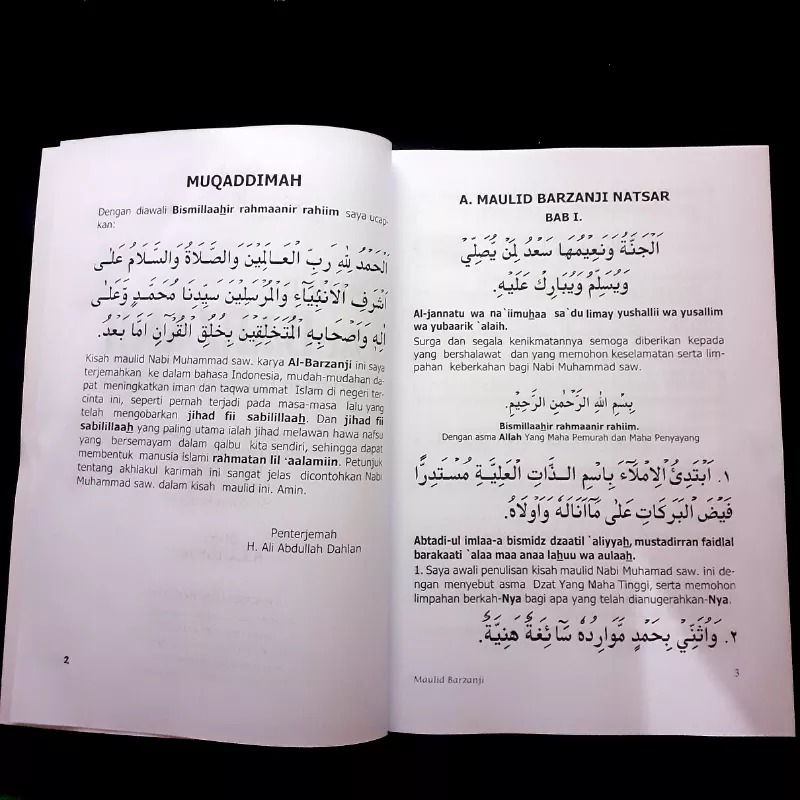 MUQADDIMAH
Dengan diawali Bismillaahir rahmaanir rahiim saya ucap-
kan:
اَلْحَمْدُ لِلّٰهِ رَبِّ الْعَالَمِيْنَ وَالصَّلَاةُ وَالسَّلَامُ عَلٰى
اَشْرَفِ الْاَنْبِيَاءِ وَالْمُرْسَلِيْنَ سَيِّدِنَا مُحَمَّدٍ وَّعَلٰى
اٰلِهٖ وَاَصْحَابِهِ الْمُتَخَلِّقِيْنَ بِخُلُقِ الْقُرْاٰنِ اَمَّا بَعْدُ.
Kisah maulid Nabi Muhammad saw. karya Al-Barzanji ini saya
terjemahkan ke dalam bahasa Indonesia, mudah-mudahan da-
pat meningkatkan iman dan taqwa ummat Islam di negeri ter-
cinta ini, seperti pernah terjadi pada masa-masa lalu yang
telah mengobarkan jihad fii sabilillaah. Dan jihad fii
sabilillaah yang paling utama ialah jihad melawan hawa nafsu
yang bersemayam dalam qalbu kita sendiri, sehingga dapat
membentuk manusia Islami rahmatan lil `aalamiin. Petunjuk
tentang akhlakul karimah ini sangat jelas dicontohkan Nabi
Muhammad saw. dalam kisah maulid ini. Amin.
Penterjemah
H. Ali Abdullah Dahlan
2
A. MAULID BARZANJI NATSAR
BAB I.
اَلْجَنَّةُ وَنَعِيْمُهَا سَعْدٌ لِمَنْ يُّصَلِّيْ
وَيُسَلِّمُ وَيُبَارِكُ عَلَيْهِ.
Al-jannatu wa na`iimuhaa sa`du limay yushallii wa yusallim
wa yubaarik `alaih.
Surga dan segala kenikmatannya semoga diberikan kepada
yang bershalawat dan yang memohon keselamatan serta lim-
pahan keberkahan bagi Nabi Muhammad saw.
بِسْمِ اللهِ الرَّحْمٰنِ الرَّحِيْمِ.
Bismillaahir rahmaanir rahiim.
Dengan asma Allah Yang Maha Pemurah dan Maha Penyayang
١. اَبْتَدِئُ الْاِمْلَاءَ بِاسْمِ الذَّاتِ الْعَلِيَّةِ مُسْتَدِرًّا
فَيْضَ الْبَرَكَاتِ عَلٰى مَاۤاَنَالَهٗ وَاَوْلَاهُ.
Abtadi-ul imlaa-a bismidz dzaatil `aliyyah, mustadirran faidlal
barakaati `alaa maa anaa lahuu wa aulaah.
1. Saya awali penulisan kisah maulid Nabi Muhamad saw. ini de-
ngan menyebut asma Dzat Yang Maha Tinggi, serta memohon
limpahan berkah-Nya bagi apa yang telah dianugerahkan-Nya.
٢. وَاُثَنِّيْ بِحَمْدٍ مَّوَارِدُهٗ سَاۤئِغَةٌ هَنِيَّةٌ.
Maulid Barzanji
3